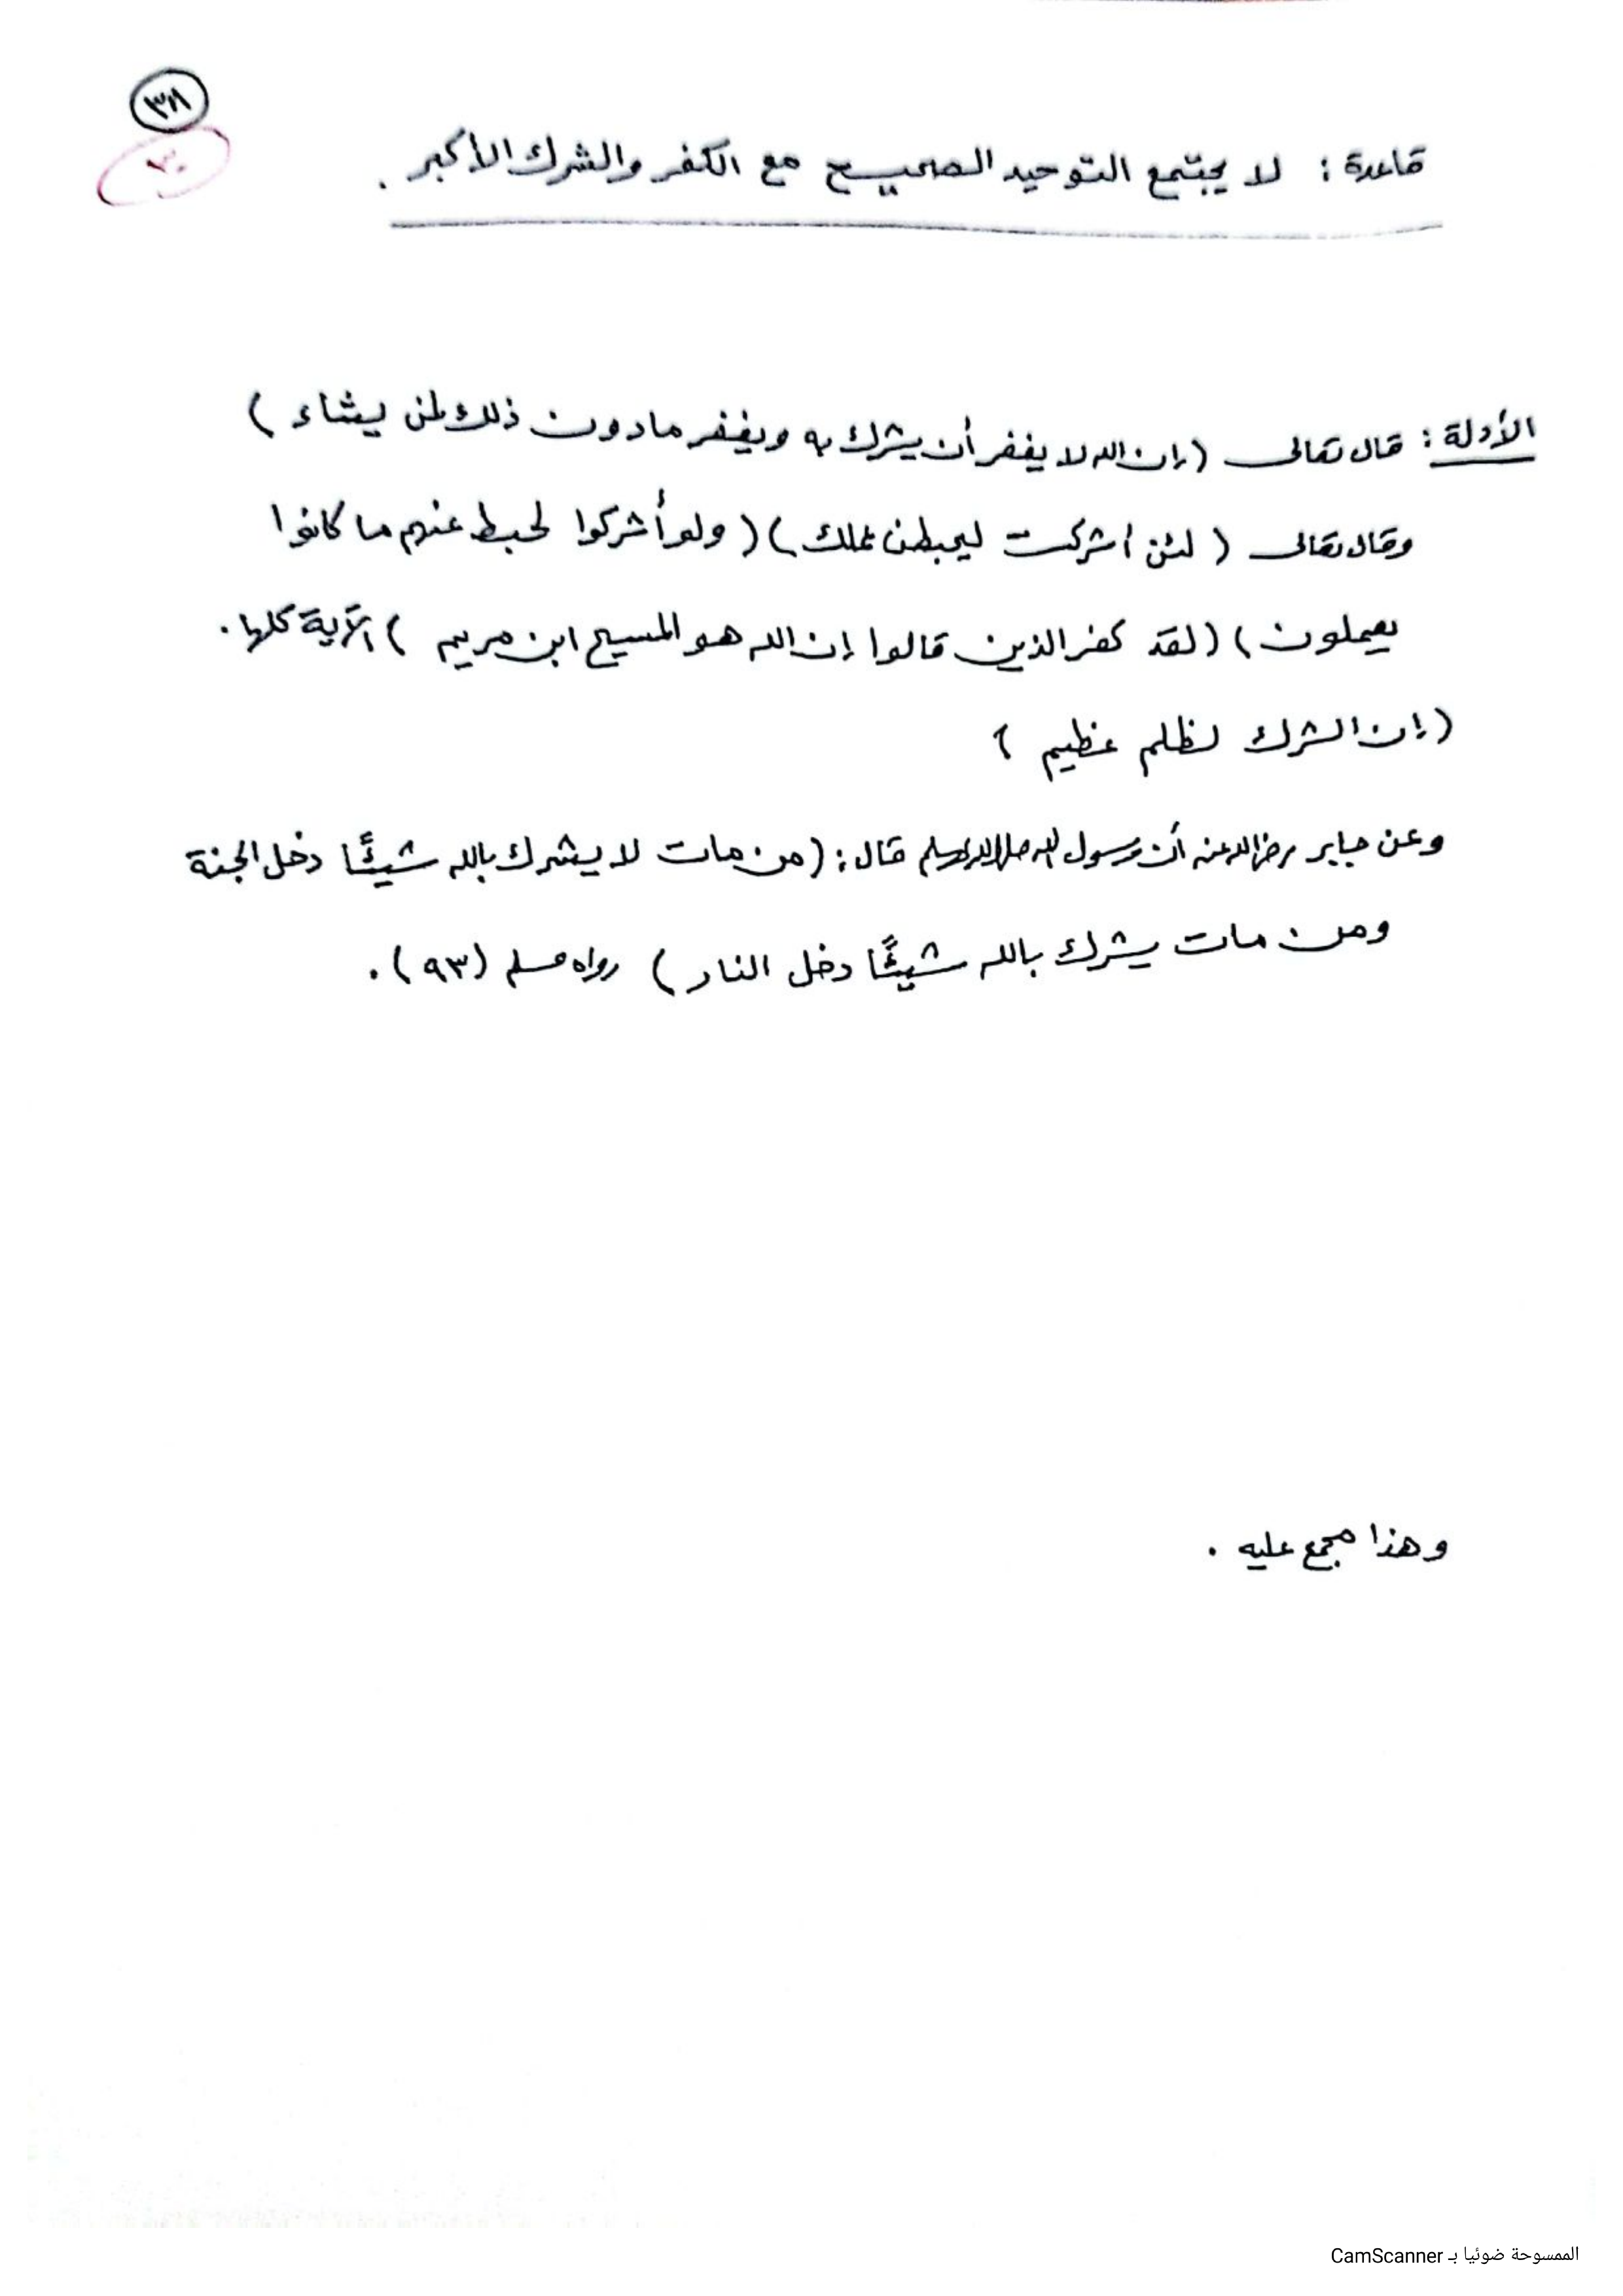 قاعدة : لا يجتمع التوحيد الصحيح مع الكفر والشرك الأكبر .
٣٠
الأدلة : قال تعالى (إن الله لا يغفر أن يشرك به ويغفر مادون ذلك لمن يشاء )
وقال تعالى ( لئن أشركت ليحبطن عملك ) ( ولو أشركوا لحبط عنهم ما كانوا
يعملون ) (لقد كفر الذين قالوا إن الله هو المسيح ابن مريم ) الآية كلها .
(إن الشرك لظلم عظيم )
وعن جابر رضي الله عنه أن رسول الله صلى الله عليه وسلم قال : (من مات لا يشرك بالله شيئًا دخل الجنة
ومن مات يشرك بالله شيئًا دخل النار ) رواه مسلم (٩٣) .
وهذا مجمع عليه .
الممسوحة ضوئيا بـ CamScanner